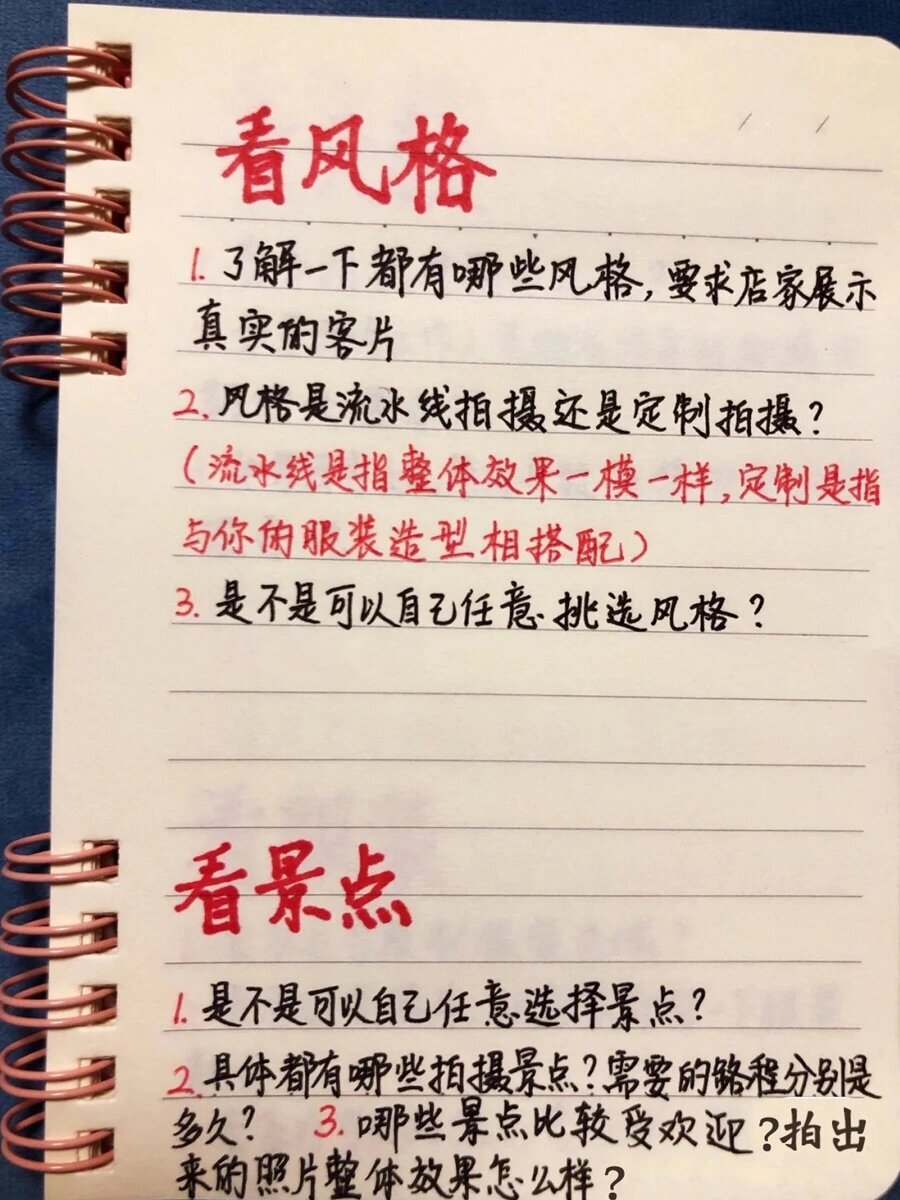 看风格
1. 了解一下都有哪些风格,要求店家展示
真实的客片
2. 风格是流水线拍摄还是定制拍摄?
(流水线是指整体效果一模一样,定制是指
与你的服装造型相搭配)
3. 是不是可以自己任意挑选风格?
看景点
1. 是不是可以自己任意选择景点?
2. 具体都有哪些拍摄景点?需要的路程分别是
多久? 3. 哪些景点比较受欢迎?拍出
来的照片整体效果怎么样?